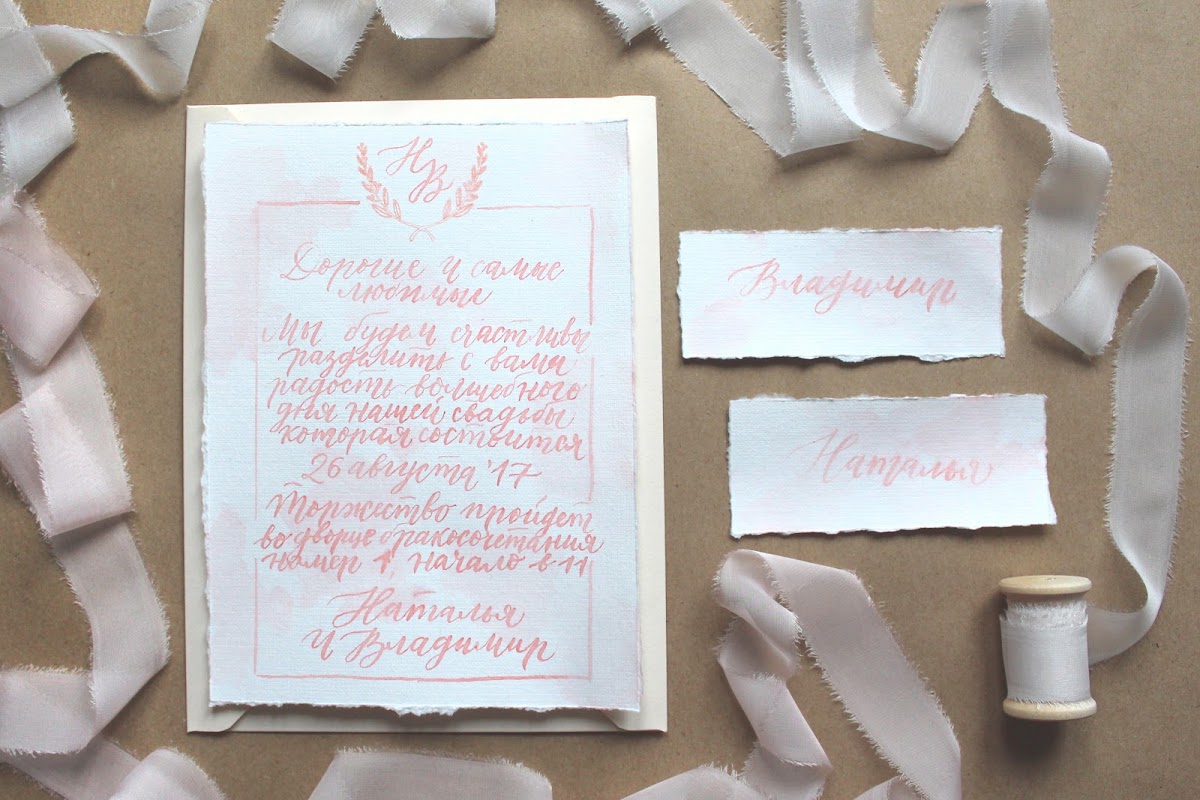 НВ
Дорогие и самые
любимые
Мы будем счастливы
разделить с вами
радость волшебного
дня нашей свадьбы
которая состоится
26 августа '17
Торжество пройдет
во дворце бракосочетания
номер 1, начало в 11
Наталья
и Владимир
Владимир
Наталья